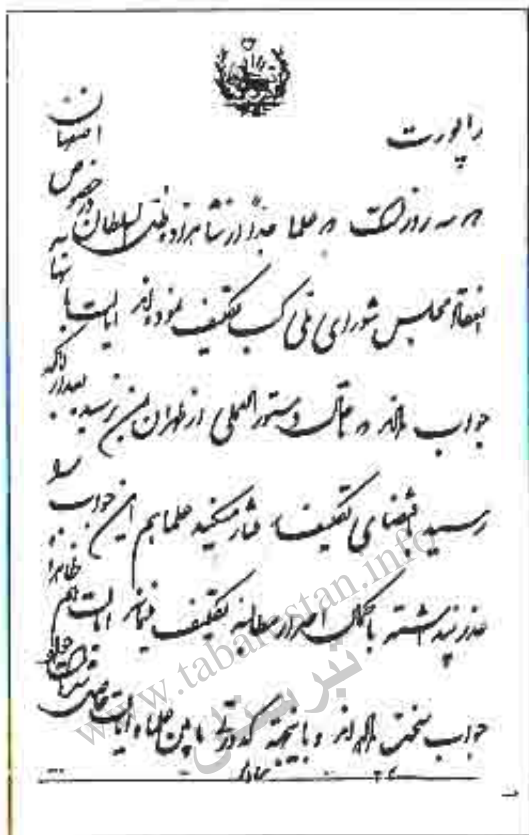 راپورت
اصفهان
سه روز است علما جداً از شاهزاده ظل السلطان در خصوص
انعقاد مجلس شورای ملی کسب تکلیف نموده‌اند ایالت
جواب داده دستورالعملی از طهران بمن نرسیده بعد از آنکه
رسید باقتضای تکلیف رفتار میکنید علما هم این جواب را
عذر پنداشته با کمال اصرار مطالبه تکلیف ایالت هم
جواب سخت داده‌اند و باینجهة کدورتی مابین علما و ایالت حاصل
www.tabarestan.info
تبرستان